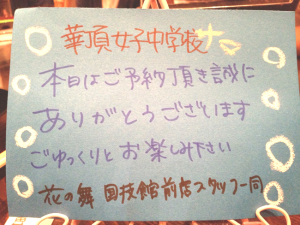 華頂女子中学校さま
本日はご予約頂き誠に
ありがとうございます
ごゆっくりとお楽しみ下さい
花の舞 国技館前店スタッフ一同